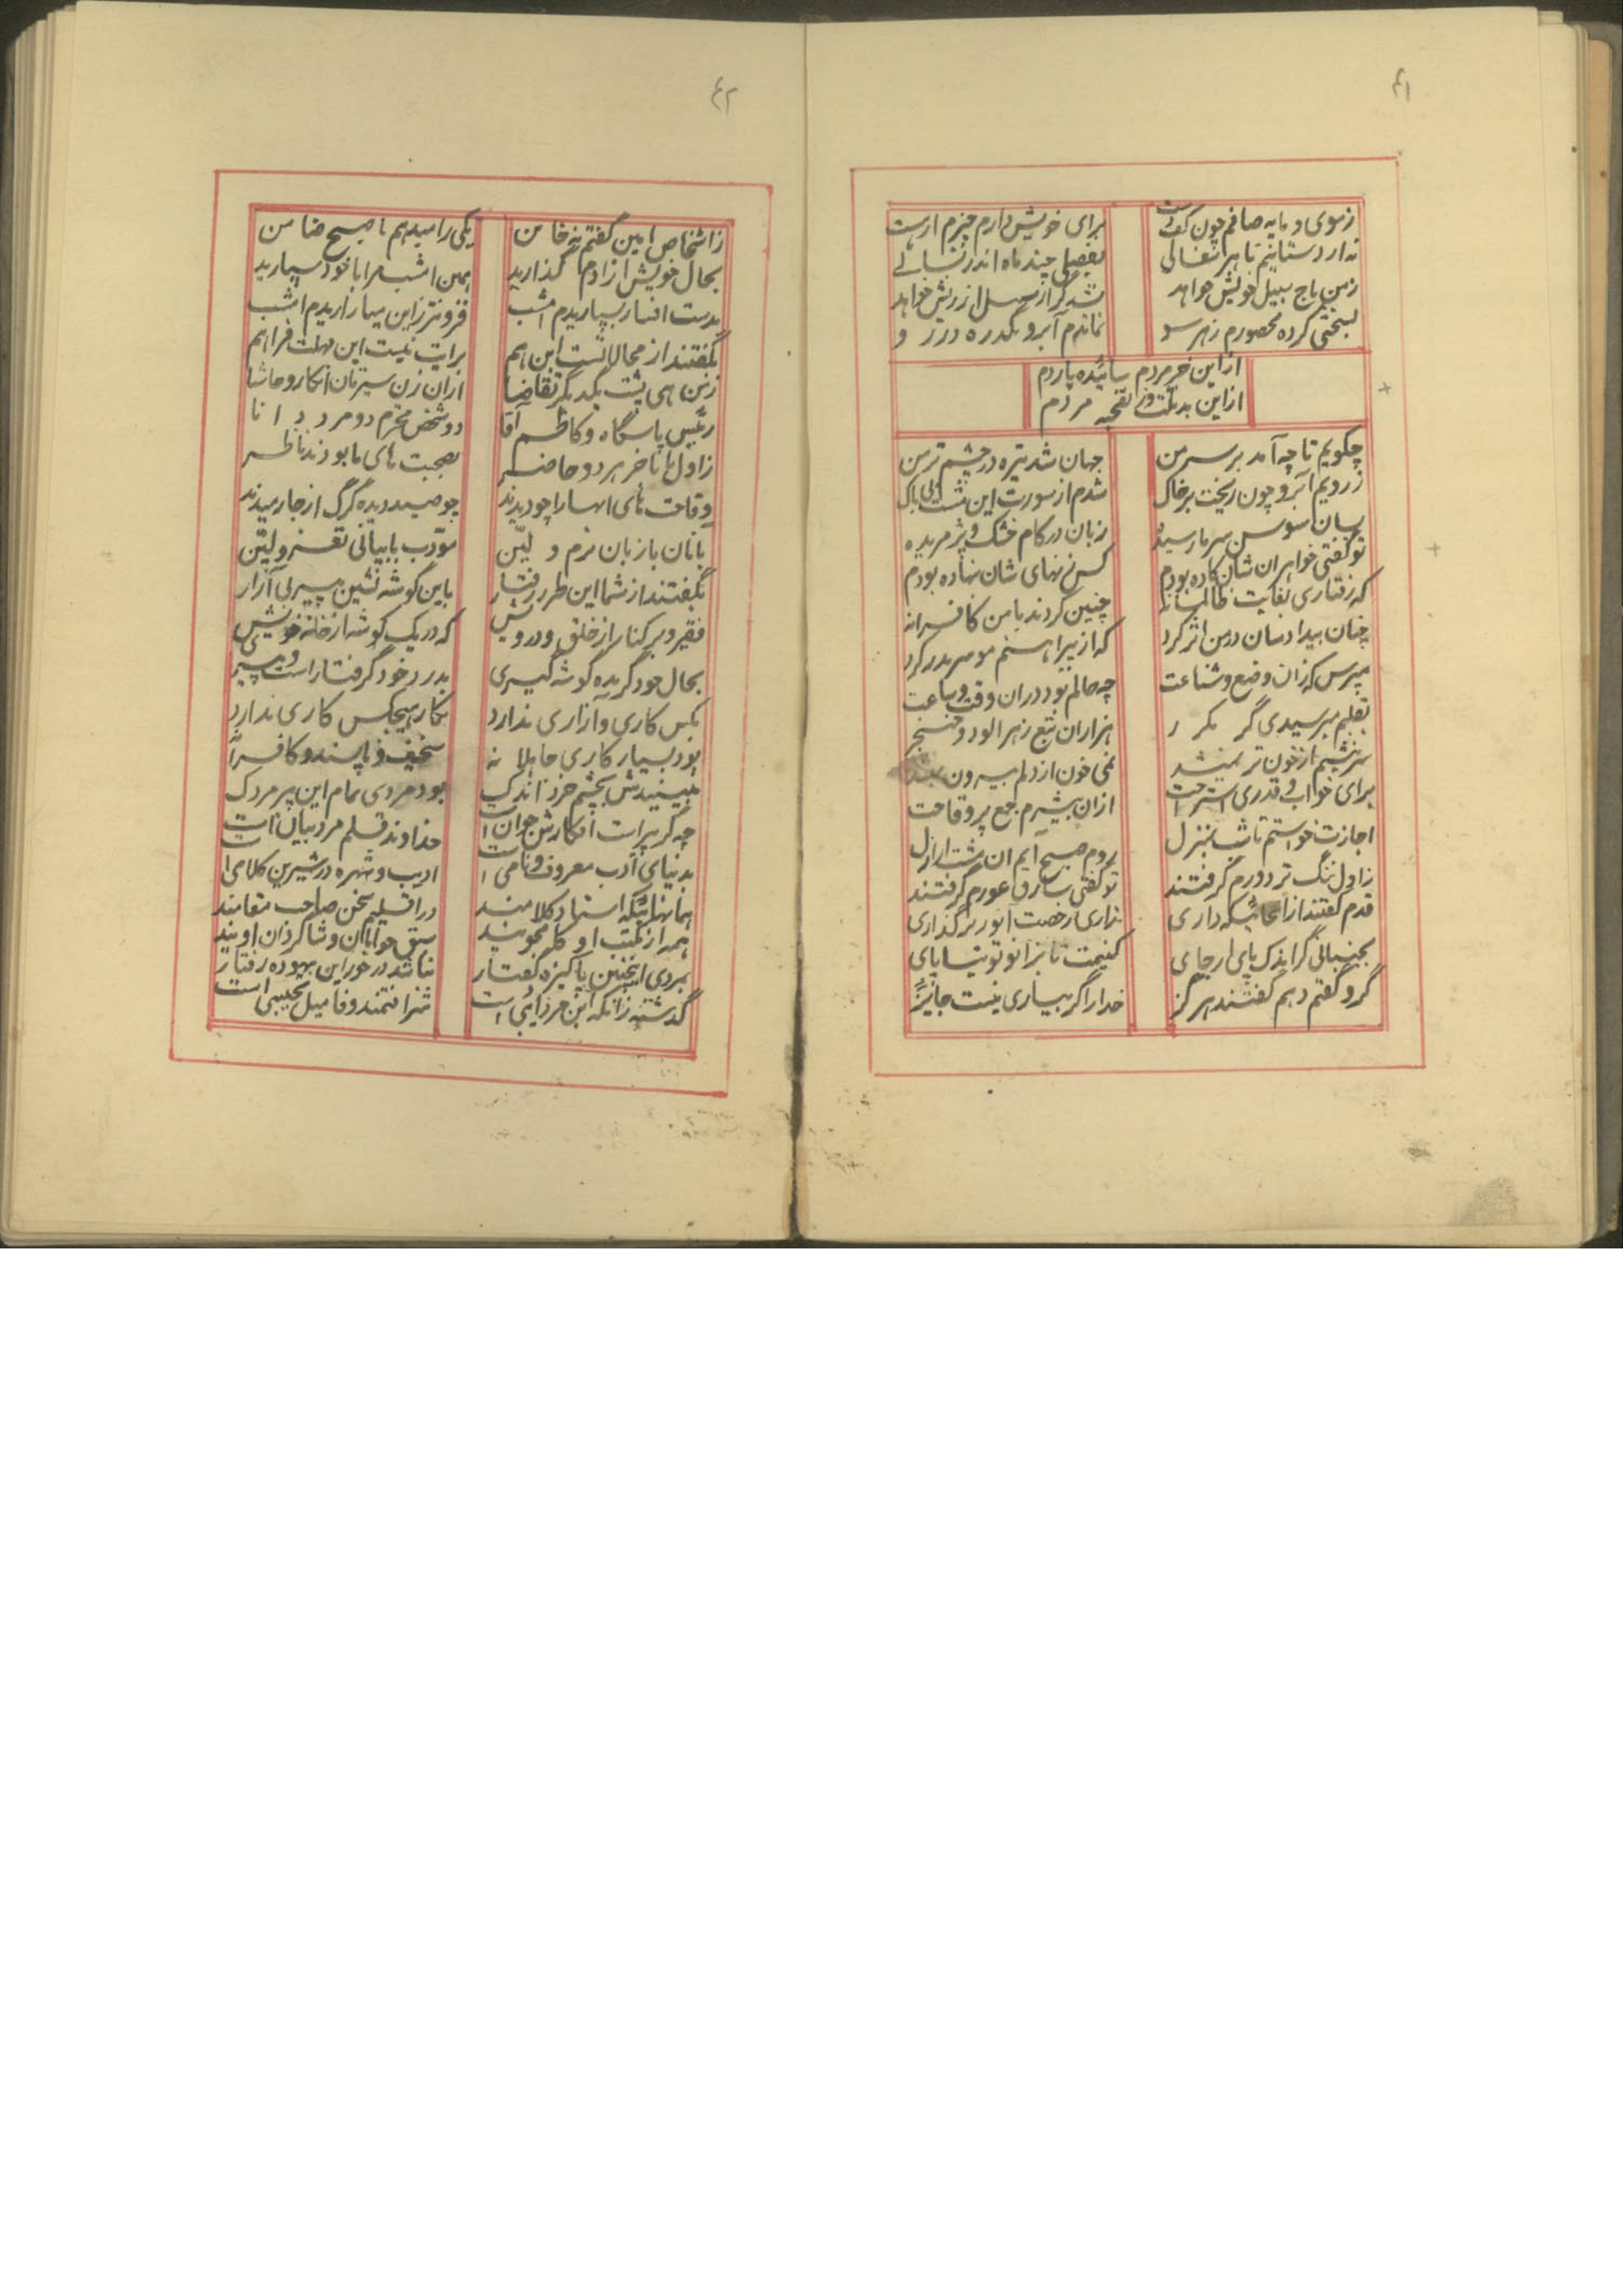 ۴۱
زسوی دو مایه صافم چون کف دست
برای خویش دارم چیزم ار هست
نه ارد ستانیم تا هر شغالی
بفصلی چند ماه اندر بسالی
زمن باج سبیل خویش خواهد
شد گر از عسل از ریش خواهد
بسختی کرده محصورم زهر سو
نماندم آبرو یکذره در رو
از این خر مردم سائیده پاردم
از این بد بکت ور قحبه مردم
چگویم تا چه آمد بر سر من
جهان شد تیره در چشم تر من
ز رویم آبرو چون ریخت بر خاک
شدم از سورت این مشت بی باک
بسان سوسن سرما رسیده
زبان در کام خشک و پژمریده
تو گفتی خواهران شان گاده بودم
کس نهای شان نهاده بودم
که رفتاری بغایت ظالمانه
چنین کردند با من کافرانه
چنان بیدادسان در من اثر کرد
که از پیراهنم مو سر بدر کرد
مپرس که زان وضع و شناعت
چه حالم بود دران وقت و ساعت
بقلبم میرسیدی گر مکرر
هزاران تیغ زهرآلود و خنجر
سرنشیم از خون تر نمیشد
نمی خون از دلم بیرون نمیشد
برای خواب و قدری استراحت
ازان بیشرم جمع پر وقاحت
اجازت خواستم تا شب بمنزل
روم صبح آیم ان مشت اراذل
ز اول تنگ تر دورم گرفتند
تو گفتی سارق عورم گرفتند
قدم گفتند از آنجائیکه داری
نزاری رخصت آنور تر گذاری
بجنبانی گر اندک پای از جای
کنیمت تا بزانو تو بتا پای
گرو گفتم دهم گفتند هرگز
خدا را گر بیاری نیست جایز
۴۲
ز اشخاص امین گفتم نه خائن
یکی را میدهم تا صبح ضامن
بحال خویش ازادم گذارید
بمن امشب مرا با خود سپارید
بدست افسار بسپاریدم امشب
فزونتر زاین میازاریدم امشب
بگفتند از محالاتست این هم
برایت نیست این مهلت فراهم
زمن هی پشت یکدیگر تقاضا
ازان زن سیرتان انکار و حاشا
رئیس پاسگاه و کاظم آقا
دو شخص محترم دو مرد دانا
ز اول تا بآخر هر دو حاضر
بصحبت های ما بودند ناظر
وقاحت های انها را چو دیدند
چو صید دیده گرگ از جا رمیدند
بانان با زبان نرم و لیّن
مؤدب با بیانی نغز و لیّن
بگفتند از شما این طرز رفتار
باین گوشه نشین پیر بی آزار
فقیر و برکنار از خلق و درویش
که در یک گوشه از خانه خویش
بحال خود گزیده گوشه گیری
بدرد خود گرفتار است و پیری
بکس کاری و آزاری ندارد
بکار هیچکس کاری ندارد
بود بسیار کاری جاهلانه
سخیف و ناپسند و کافرانه
مبینیدش بچشم خرد اندک
بود مردی تمام این پیر مردک
چه گر پیر است افکارش جوان است
خداوند قلم مرد بیان است
بدنیای ادب معروف و نامی است
ادیب و شهره در شیرین کلامی است
همانهائیکه استاد کلامند
در اقلیم سخن صاحب مقامند
همه از مکتب او کلمجویند
سبق خوانان و شاگردان اویند
بمردی اینچنین پاکیزه گفتار
نباشد در خور این بیهوده رفتار
گذشته زانکه این مرد ادیبی است
شرافتمند و فامیل نجیبی است